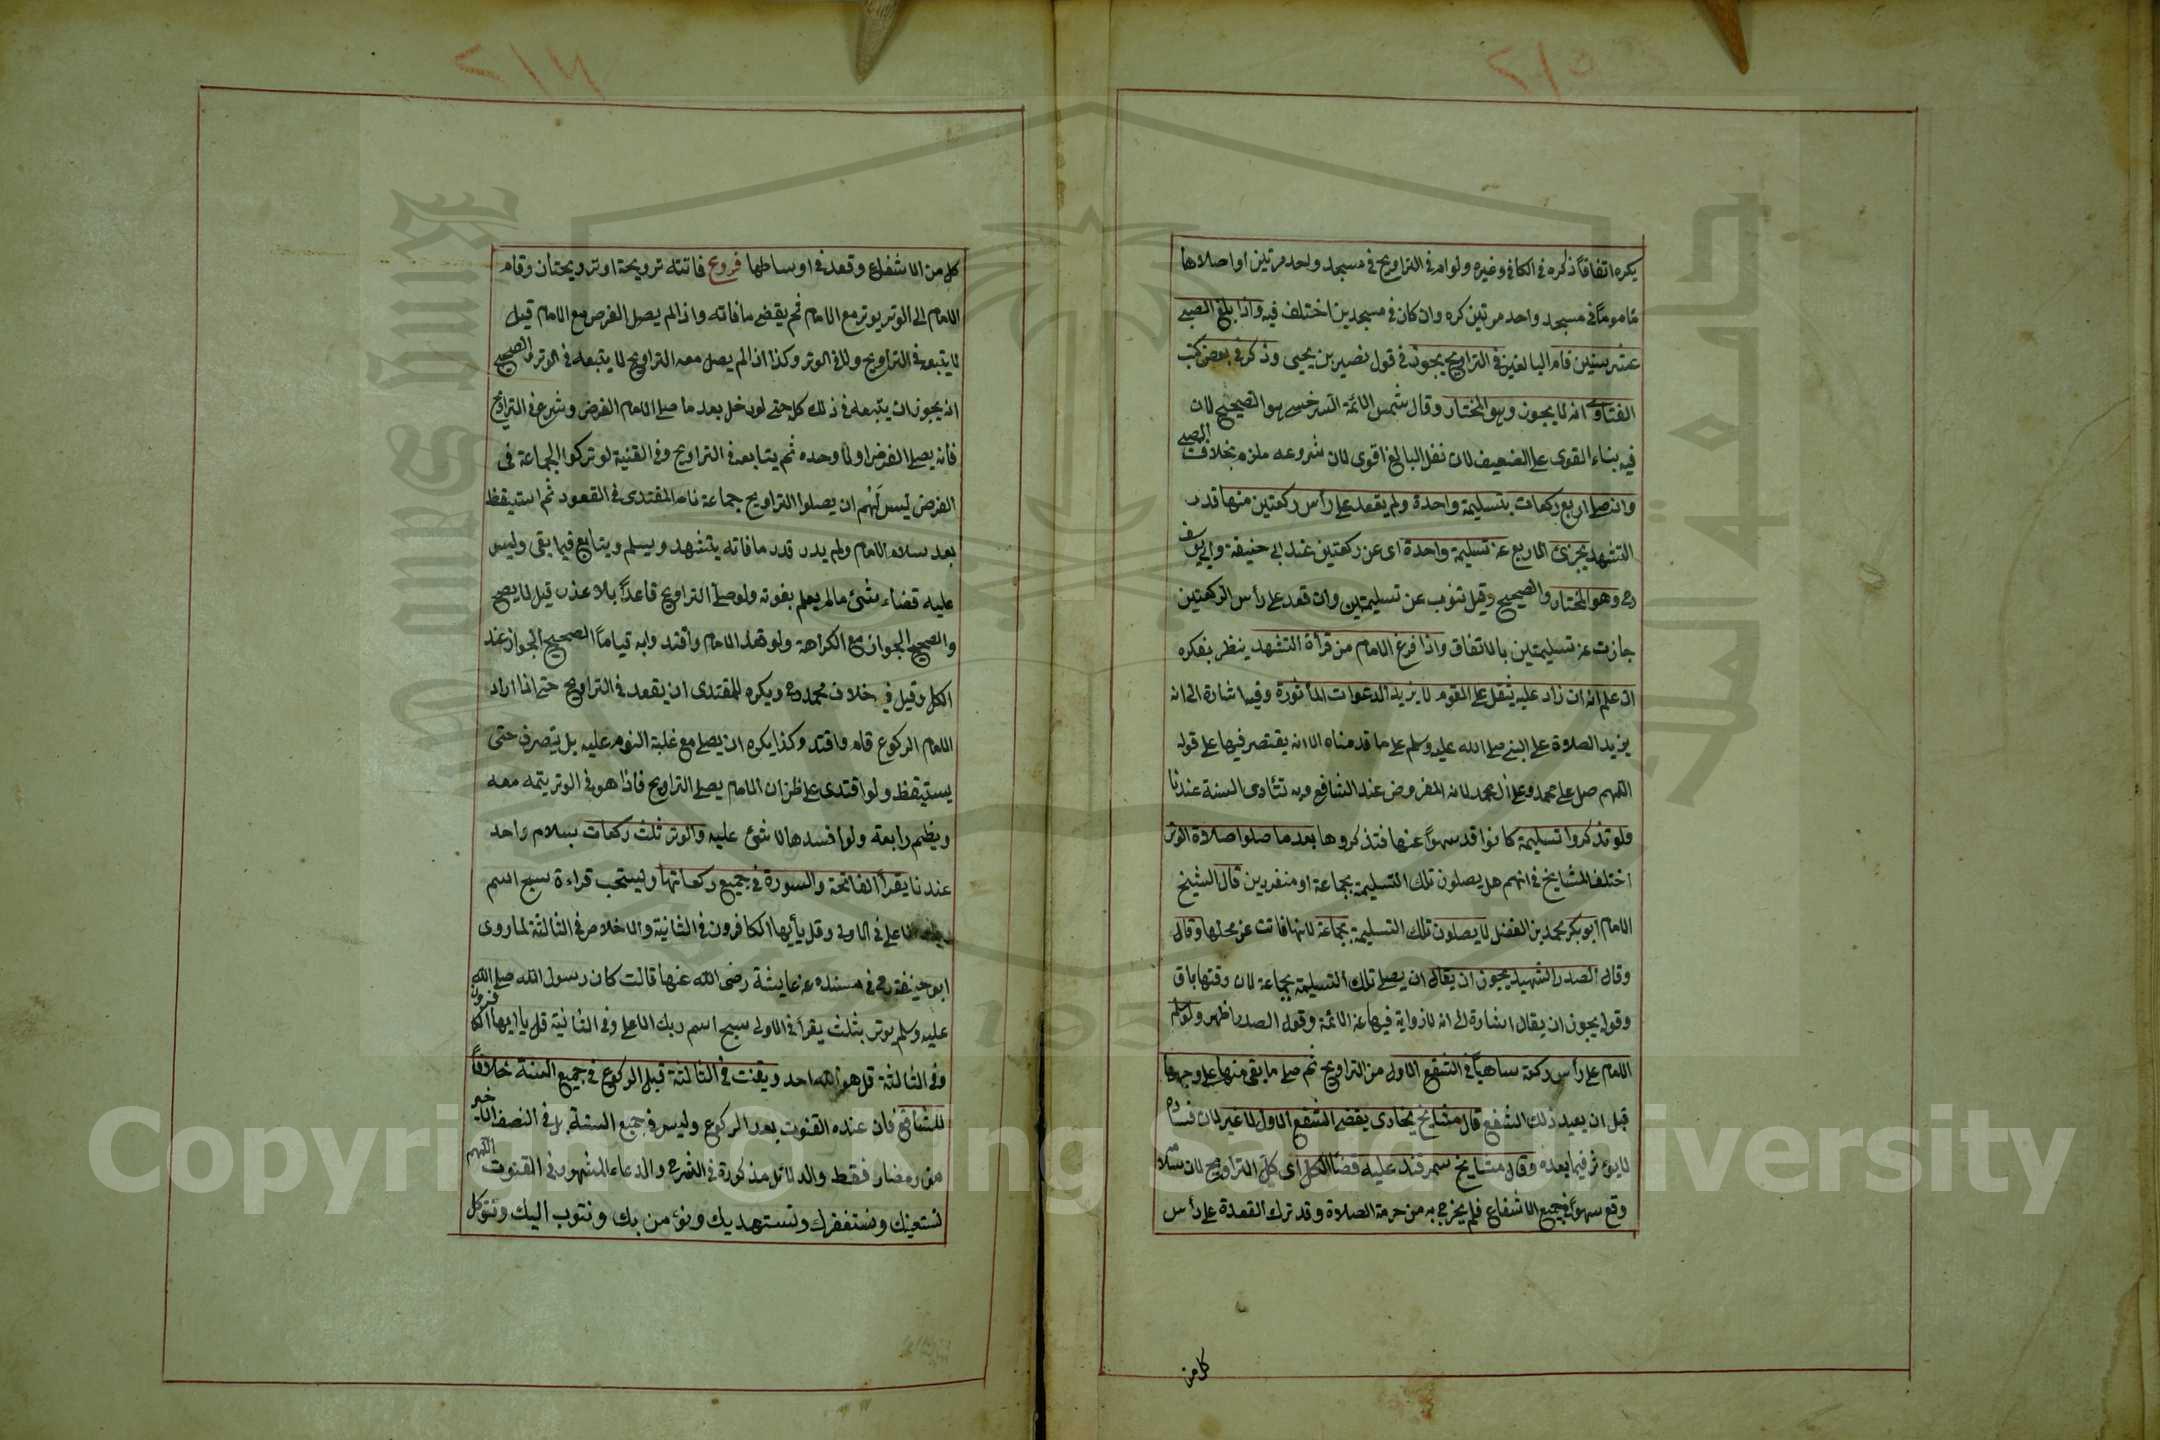 يكره اتفاقاً ذكره في الكافي وغيره ولو ام في التراويح في مسجد واحد مرتين او صلاها
مأموماً في مسجد واحد مرتين كره وان كان في مسجدين اختلف فيه واذا بلغ الصبي
عشر سنين فام البالغين في التراويح يجوز في قول نصير بن يحيى وذكر في بعض كتب
الفتاوى انه لا يجوز وهو المختار وقال شمس الائمة السرخسي هو الصحيح لان
فيه بناء القوى على الضعيف لان نفل البالغ اقوى لان شروعه ملزم بخلاف الصبي
وان صلى اربع ركعات بتسليمة واحدة ولم يقعد على رأس ركعتين منها قدر
التشهد يجزئ الاربع عن تسليمة واحدة اى عن ركعتين عند ابي حنيفة وابي يوسف
رح وهو المختار والصحيح وقيل تنوب عن تسليمتين وان قعد على رأس الركعتين
جازت عن تسليمتين بالاتفاق واذا فرغ الامام من قرأة التشهد ينظر بفكره
ان علم انه ان زاد عليه يثقل على القوم لا يزيد الدعوات المأثورة وفيه اشارة الى انه
يزيد الصلاة على النبي صلى الله عليه وسلم على ما قدمناه الا انه يقتصر فيها على قوله
اللهم صل على محمد وعلى ال محمد لانه المفروض عند الشافعي وبه تتادى السنة عندنا
ولو تذكروا تسليمة كانوا قد سهواً عنها فتذكروها بعد ما صلوا صلاة الوتر
اختلف المشايخ في انهم هل يصلون تلك التسليمة بجماعة او منفردين قال الشيخ
الامام ابو بكر محمد بن الفضل لا يصلون تلك التسليمة بجماعة لانها فاتت عن محلها وقال
وقال الصدر الشهيد يجوز ان يقال ان يصلى تلك التسليمة بجماعة لان وقتها باق
وقوله يجوز ان يقال اشارة الى انه لا رواية فيها عن الائمة وقول الصدر اظهر ولو سلم
الامام على رأس ركعة ساهياً في الشفع الاول من التراويح ثم صلى ما بقى منها على وجهها
قبل ان يعيد ذلك الشفع قال مشايخ بخارى يقضى الشفع الاول لا غير لان فساده
لا يؤثر فيما بعده وقال مشايخ سمرقند عليه قضا الكل اى كل التراويح لان سلامه
وقع سهواً في جميع الاشفاع فلم يخرج به من حرمة الصلاة وقد ترك القعدة على رأس
كل من
كل من الاشفاع وقعد في اوساطها فروع فاتته ترويحة او ترويحتان وقام
الامام الى الوتر يوتر مع الامام ثم يقضى ما فاته واذا لم يصل الفرض مع الامام قيل
لا يتبعه في التراويح ولا في الوتر وكذا اذا لم يصل معه التراويح لا يتبعه في الوتر والصحيح
انه يجوز ان يتبعه في ذلك كله حتى لو دخل بعد ما صلى الامام الفرض وشرع في التراويح
فانه يصلى الفرض اولا وحده ثم يتابعه في التراويح وفي القنية لو تركوا الجماعة في
الفرض ليس لهم ان يصلوا التراويح جماعة نام المقتدى في القعود ثم استيقظ
بعد سلام الامام ولم يدر قدر ما فاته يتشهد ويسلم ويتابع فيما بقى وليس
عليه قضاء شئ ما لم يعلم بفوته ولو صلى التراويح قاعداً بلا عذر قيل لا يصح
والصحيح الجواز مع الكراهة ولو قعد الامام واقتدوا به قياماً الصحيح الجواز عند
الكل وقيل في خلاف محمد رح ويكره للمقتدى ان يقعد في التراويح حتى اذا اراد
الامام الركوع قام واقتد وكذا يكره ان يصلى مع غلبة النوم عليه بل يتصرف حتى
يستيقظ ولو اقتدى على ظن ان الامام يصلى التراويح فاذا هو في الوتر يتمه معه
ويضم رابعة ولو افسدها لا شئ عليه والوتر ثلث ركعات بسلام واحد
عندنا يقرأ الفاتحة والسورة في جميع ركعاتها ويستحب قراءة سبح اسم
ربك الاعلى في الاولى وقل يأيها الكافرون في الثانية والاخلاص في الثالثة لما روى
ابو حنيفة رح في مسنده عن عايشة رضى الله عنها قالت كان رسول الله صلى الله
عليه وسلم يوتر بثلث يقرأ في الاولى سبح اسم ربك الاعلى وفي الثانية قل يا ايها الكافرون
وفي الثالثة قل هو الله احد ويقنت في الثالثة قبل الركوع في جميع السنة خلافاً
للشافعي فان عنده القنوت بعد الركوع وليس في جميع السنة بل في النصف الاخير
من رمضان فقط والدلائل مذكورة في الشرح والدعاء المشهور في القنوت اللهم
نستعينك ونستغفرك ونستهديك ونؤمن بك ونتوب اليك ونتوكل
Copyright © King Saud University
1957